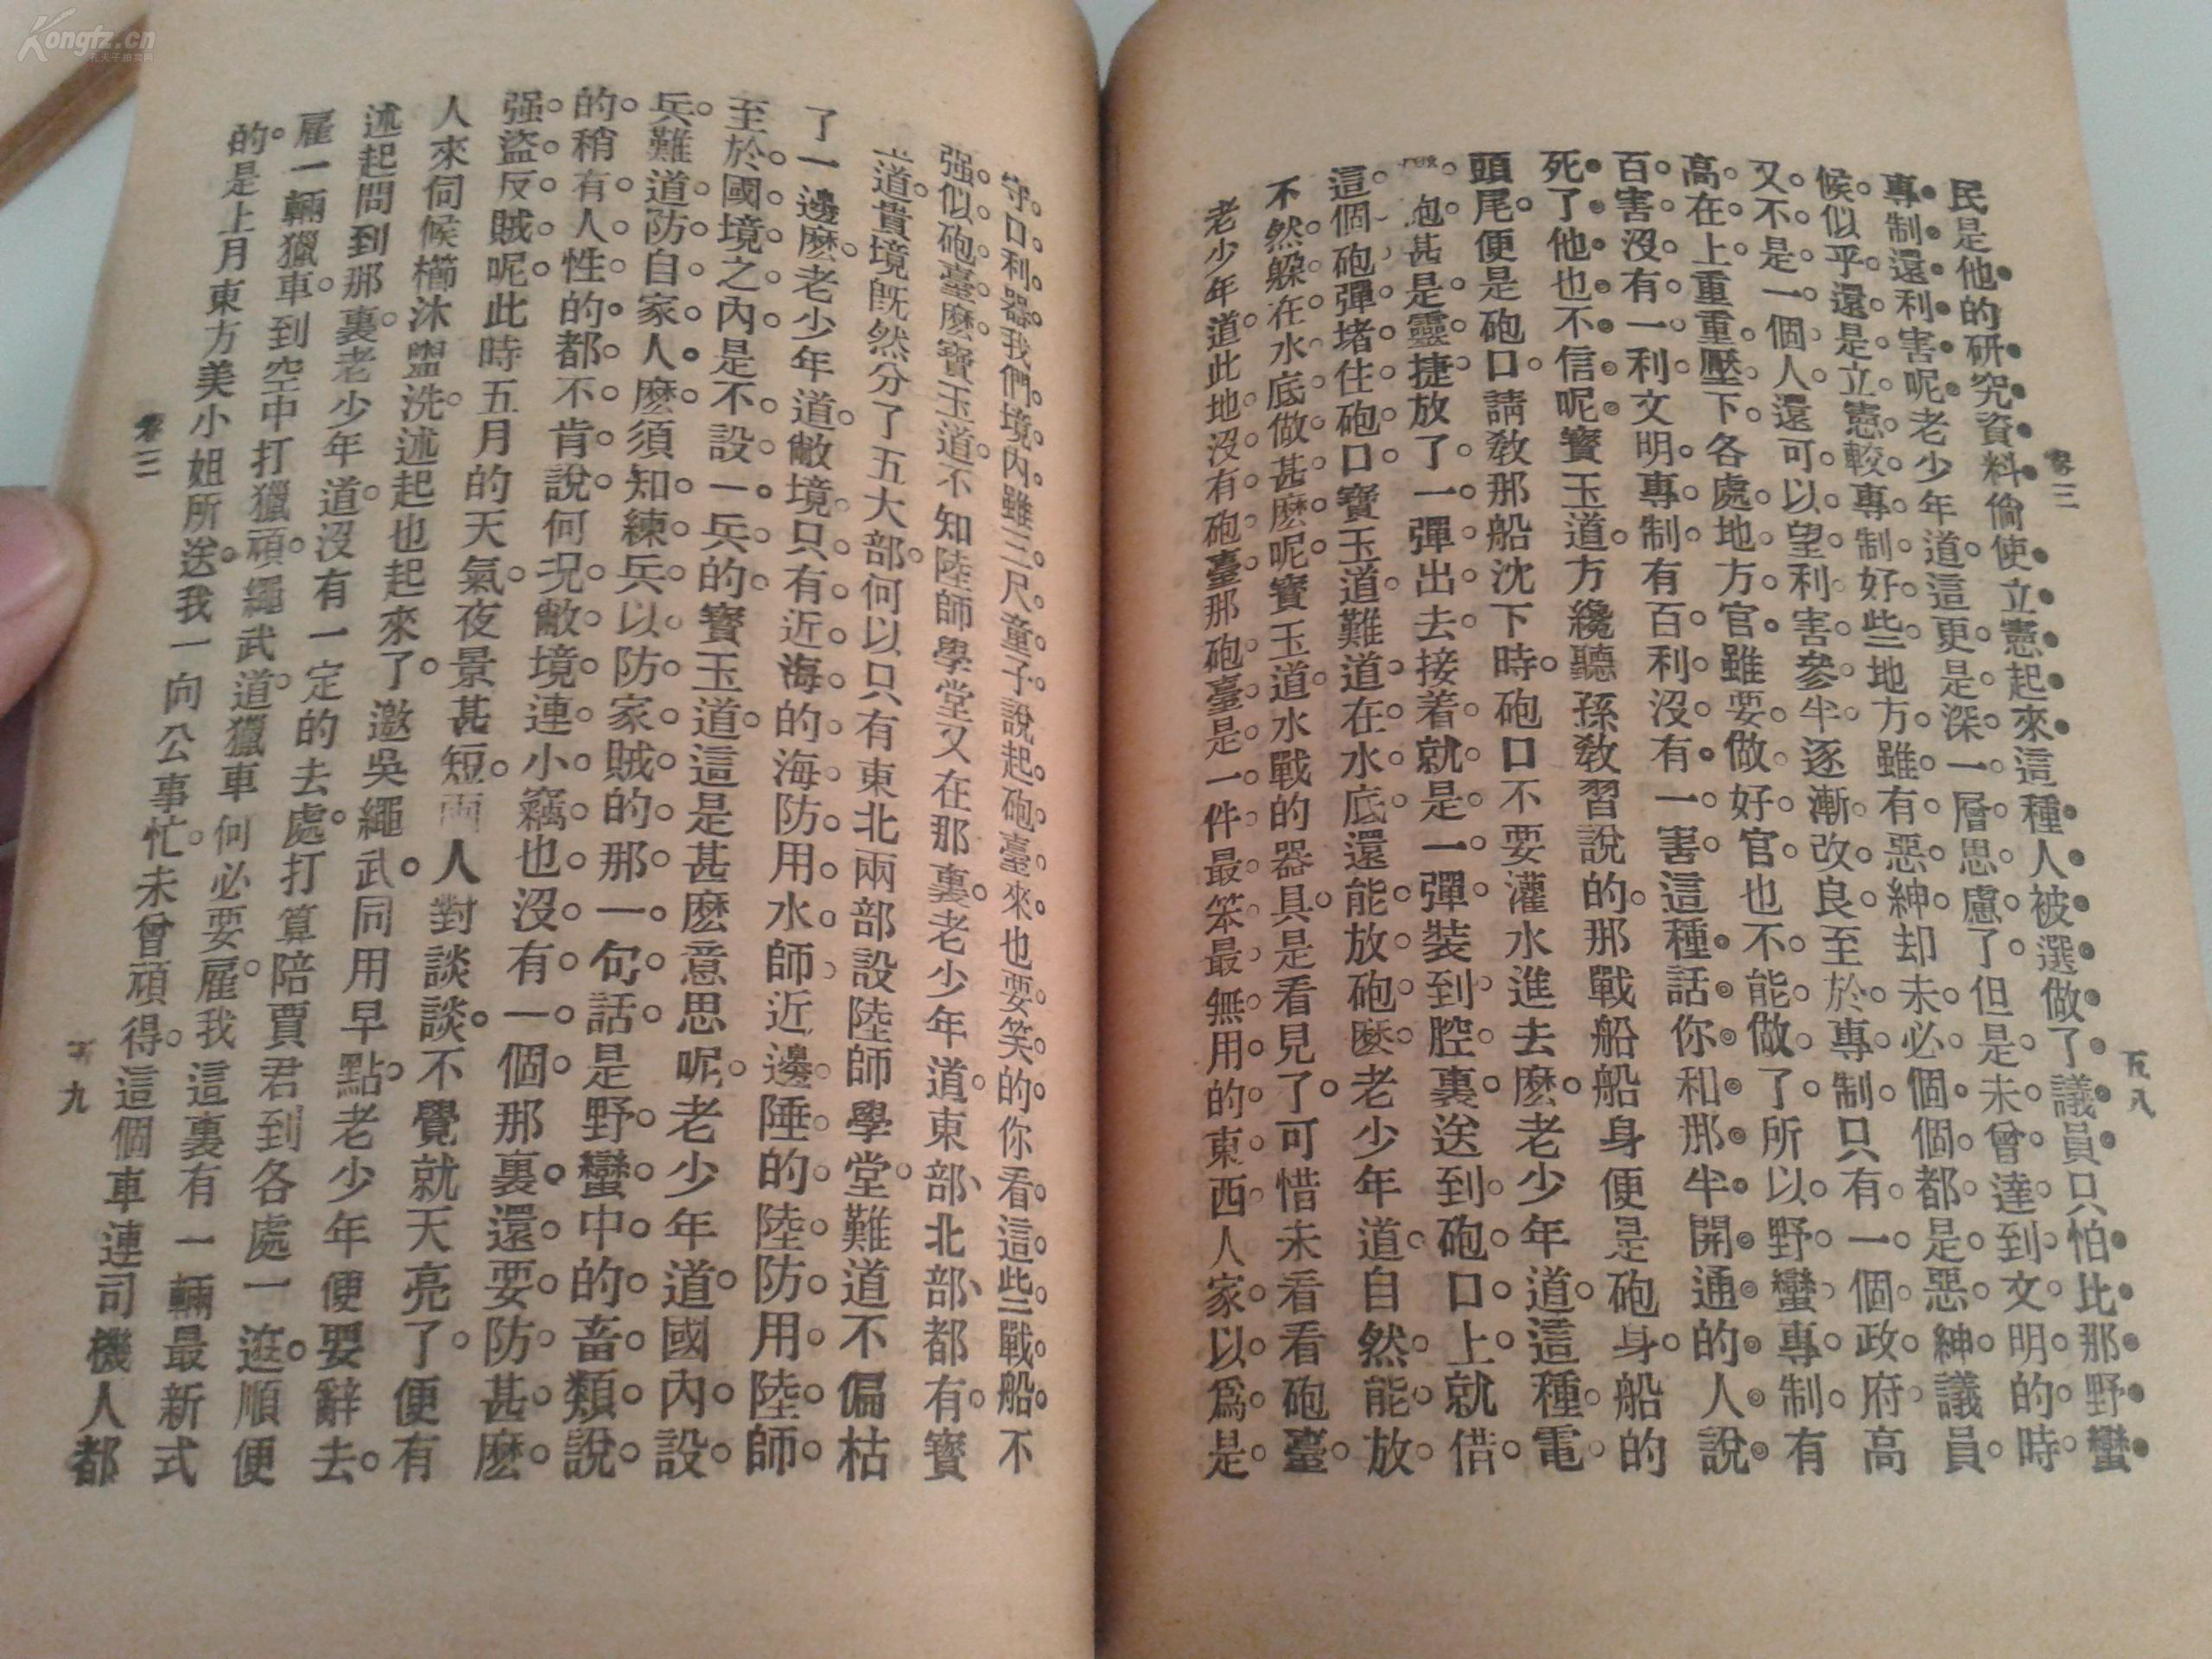 卷三
五八
民是他的研究資料倘使立憲起來這種人被選做了議員只怕比那野蠻
專制還利害呢老少年道這更是深一層思慮了但是未曾達到文明的時
候似乎還是立憲較專制好些地方雖有惡紳却未必個個都是惡紳議員
又不是一個人還可以望利害參半逐漸改良至於專制只有一個政府高
高在上重重壓下各處地方官雖要做好官也不能做了所以野蠻專制有
百害沒有一利文明專制有百利沒有一害這種話你和那半開通的人說
死了他也不信呢寶玉道方纔聽孫敎習說的那戰船船身便是砲身船的
頭尾便是砲口請敎那船沈下時砲口不要灌水進去麽老少年道這種電
砲甚是靈捷放了一彈出去接着就是一彈裝到腔裏送到砲口上就借
這個砲彈堵住砲口寶玉道難道在水底還能放砲麽老少年道自然能放
不然躱在水底做甚麽呢寶玉道水戰的器具是看見了可惜未看看砲臺
老少年道此地沒有砲臺那砲臺是一件最笨最無用的東西人家以爲是
守口利器我們境內雖三尺童子說起砲臺來也要笑的你看這些戰船不
强似砲臺麽寶玉道不知陸師學堂又在那裏老少年道東部、北部、都有寶
玉道貴境既然分了五大部何以只有東北兩部設陸師學堂難道不偏枯
了一邊麽老少年道敝境只有近海的海防用水師近邊陲的陸防用陸師
至於國境之內是不設一兵的寶玉道這是甚麽意思呢老少年道國內設
兵難道防自家人麽須知練兵以防家賊的那一句話是野蠻中的畜類說
的稍有人性的都不肯說何况敝境連小竊也沒有一個那裏還要防甚麽
强盜反賊呢此時五月的天氣夜景甚短兩人對談談不覺就天亮了便有
人來伺候櫛沐盥洗述起也起來了邀吳繩武同用早點老少年便要辭去
述起問到那裏老少年道沒有一定的去處打算陪賈君到各處一逛順便
雇一輛獵車到空中打獵頑頑繩武道獵車何必要雇我這裏有一輛最新式
的是上月東方美小姐所送我一向公事忙未曾頑得這個車連司機人都
卷三
九
Kongfz.cn